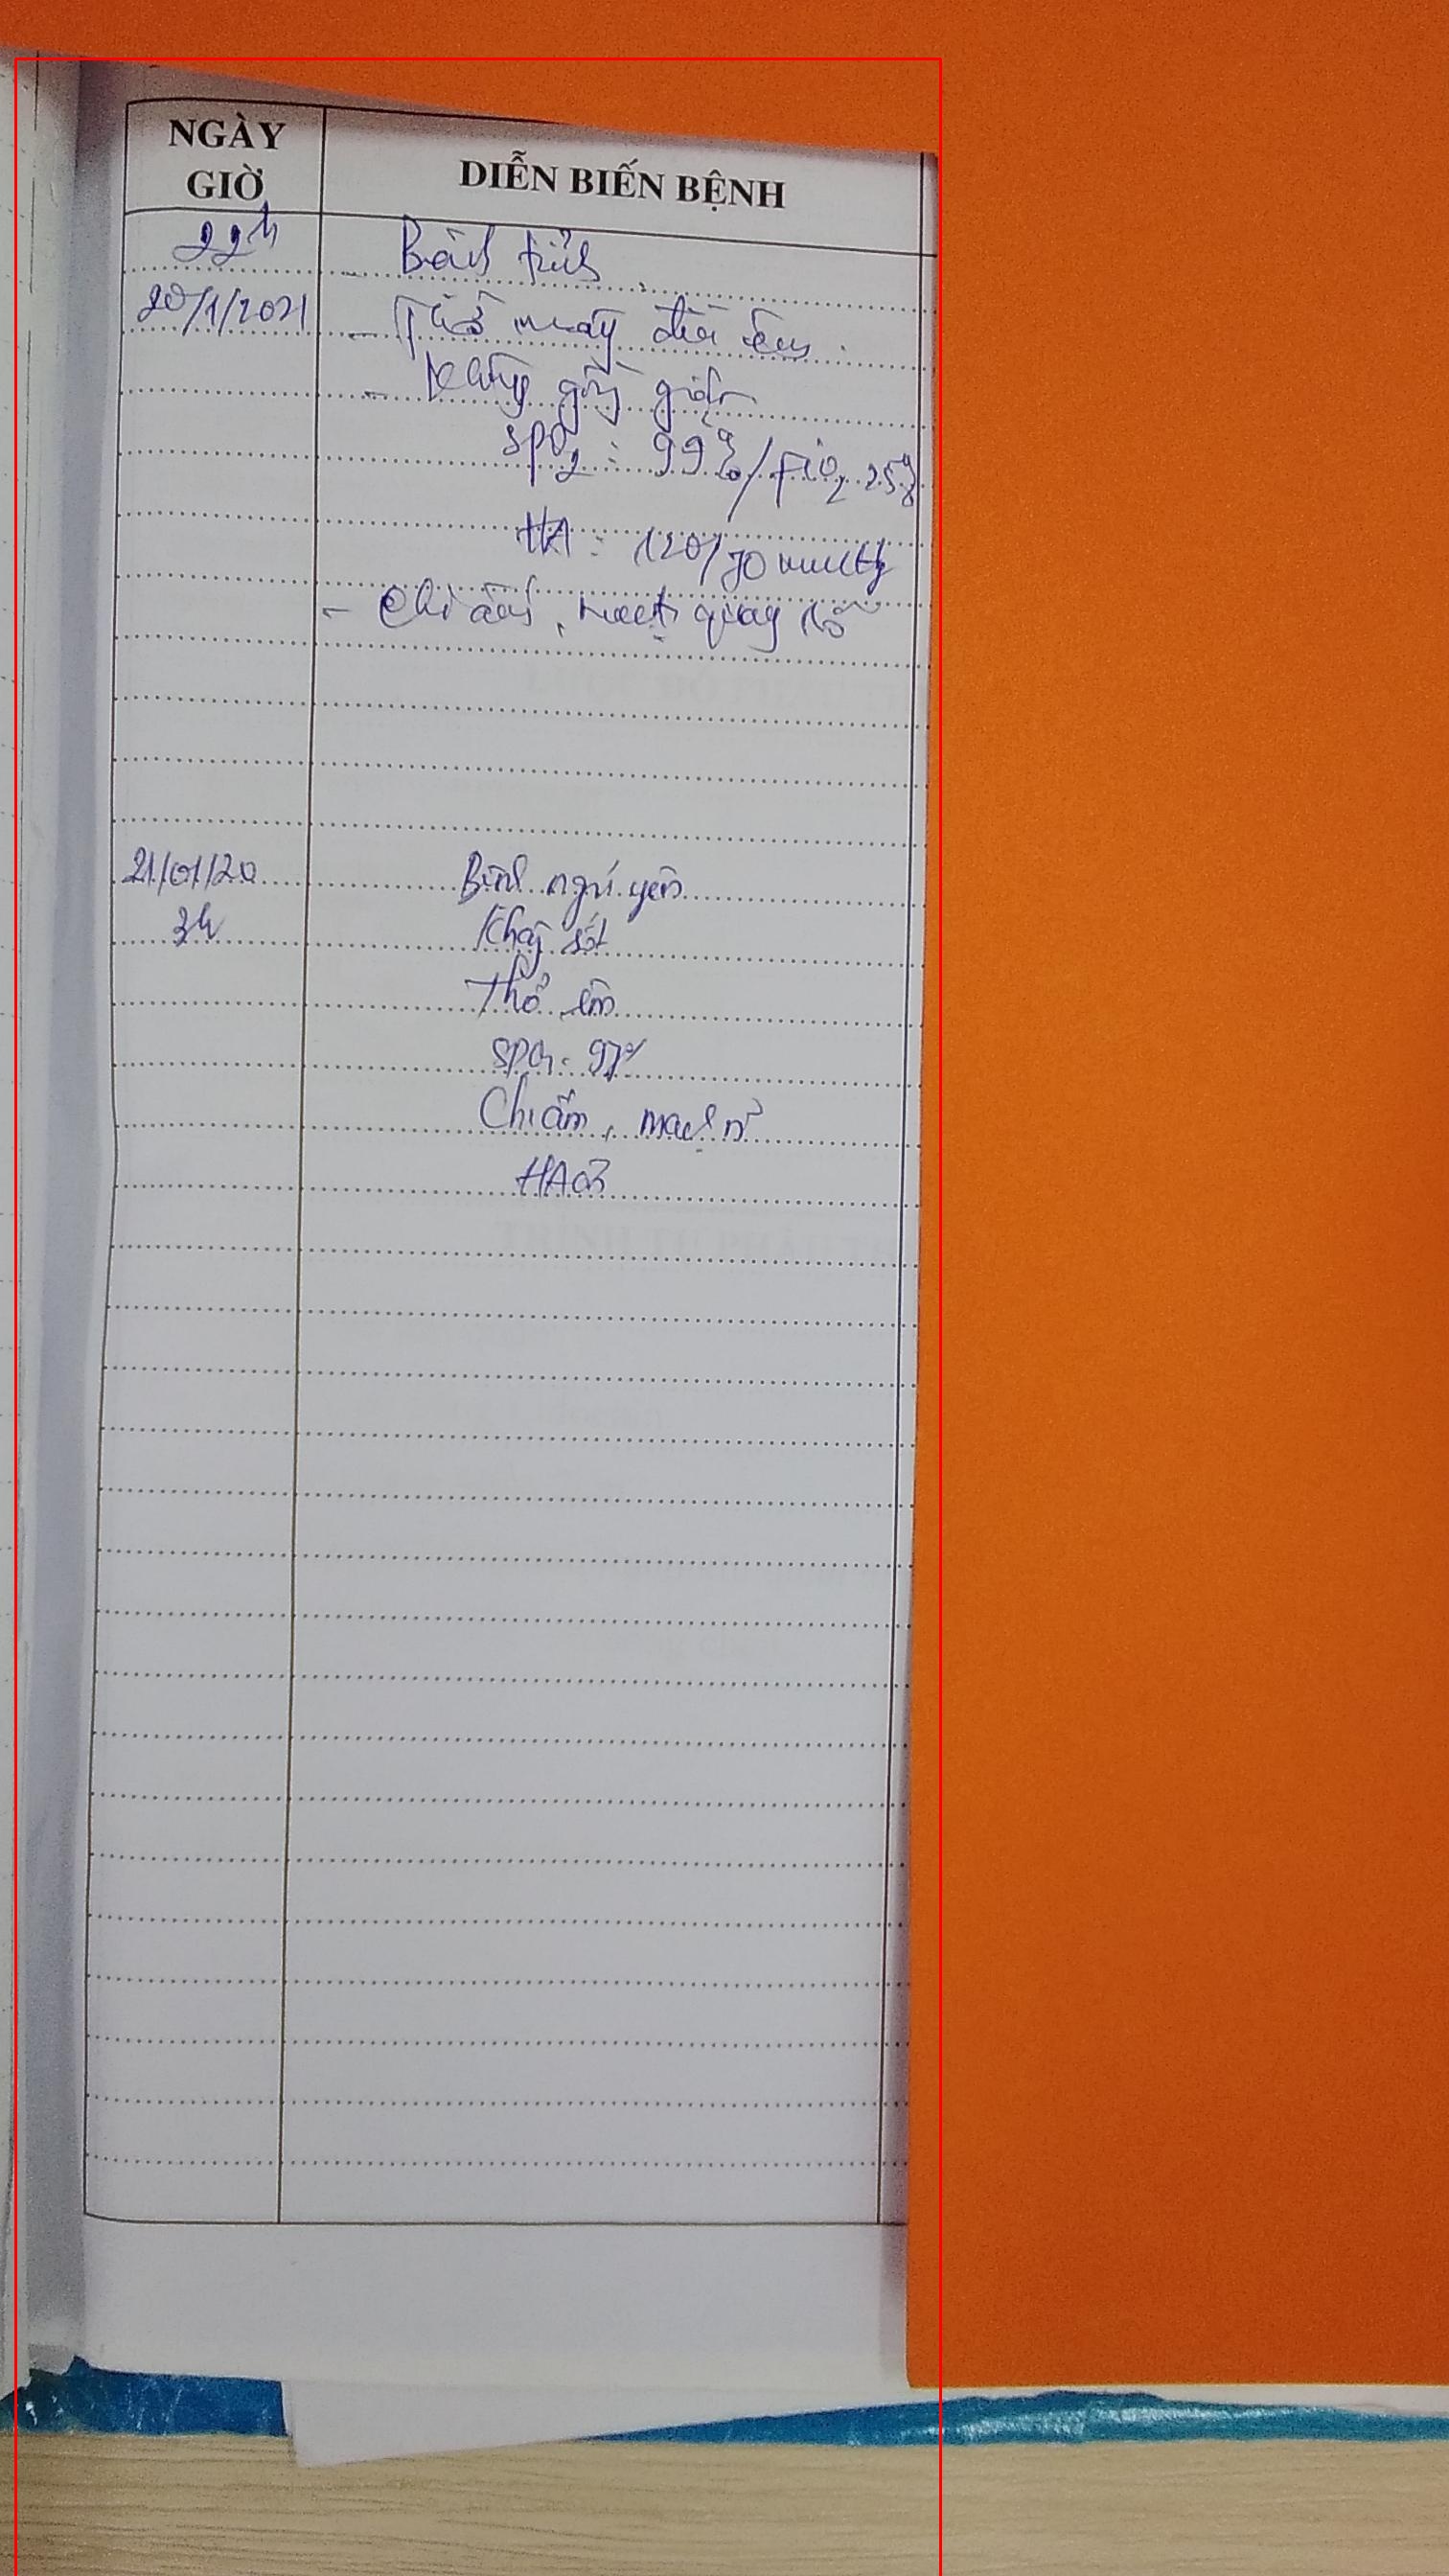 NGÀY
GIỜ
DIỄN BIẾN BỆNH
22h
- Bệnh tỉnh
20/1/2021
- Thở máy đều êm
- Không gồng giật
SpO2 : 99%/FiO2 25%
HA : 120/70 mmHg
- Chi ấm, mạch quay rõ
21/01/20
Bệnh ngủ yên
3h
Không sốt
Thở êm
SpO2: 97%
Chi ấm, mạch rõ